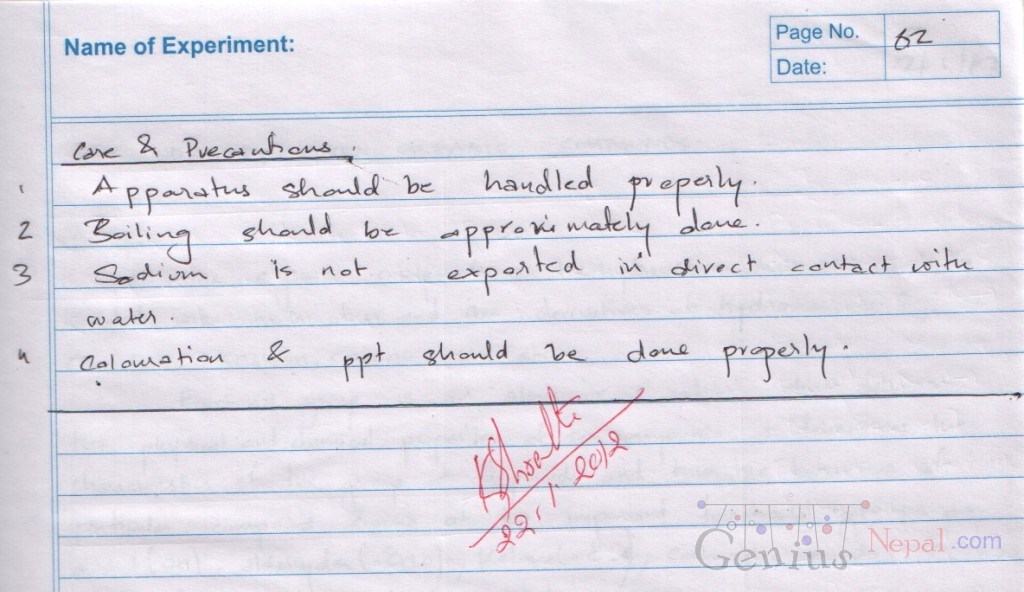 Name of Experiment:
Page No. 62
Date:
Care & Precautions.
1 Apparatus should be handled properly.
2 Boiling should be approximately done.
3 Sodium is not exported in direct contact with
water
4 Colouration & ppt should be done properly.
22.1.2012
Genius Nepal.com